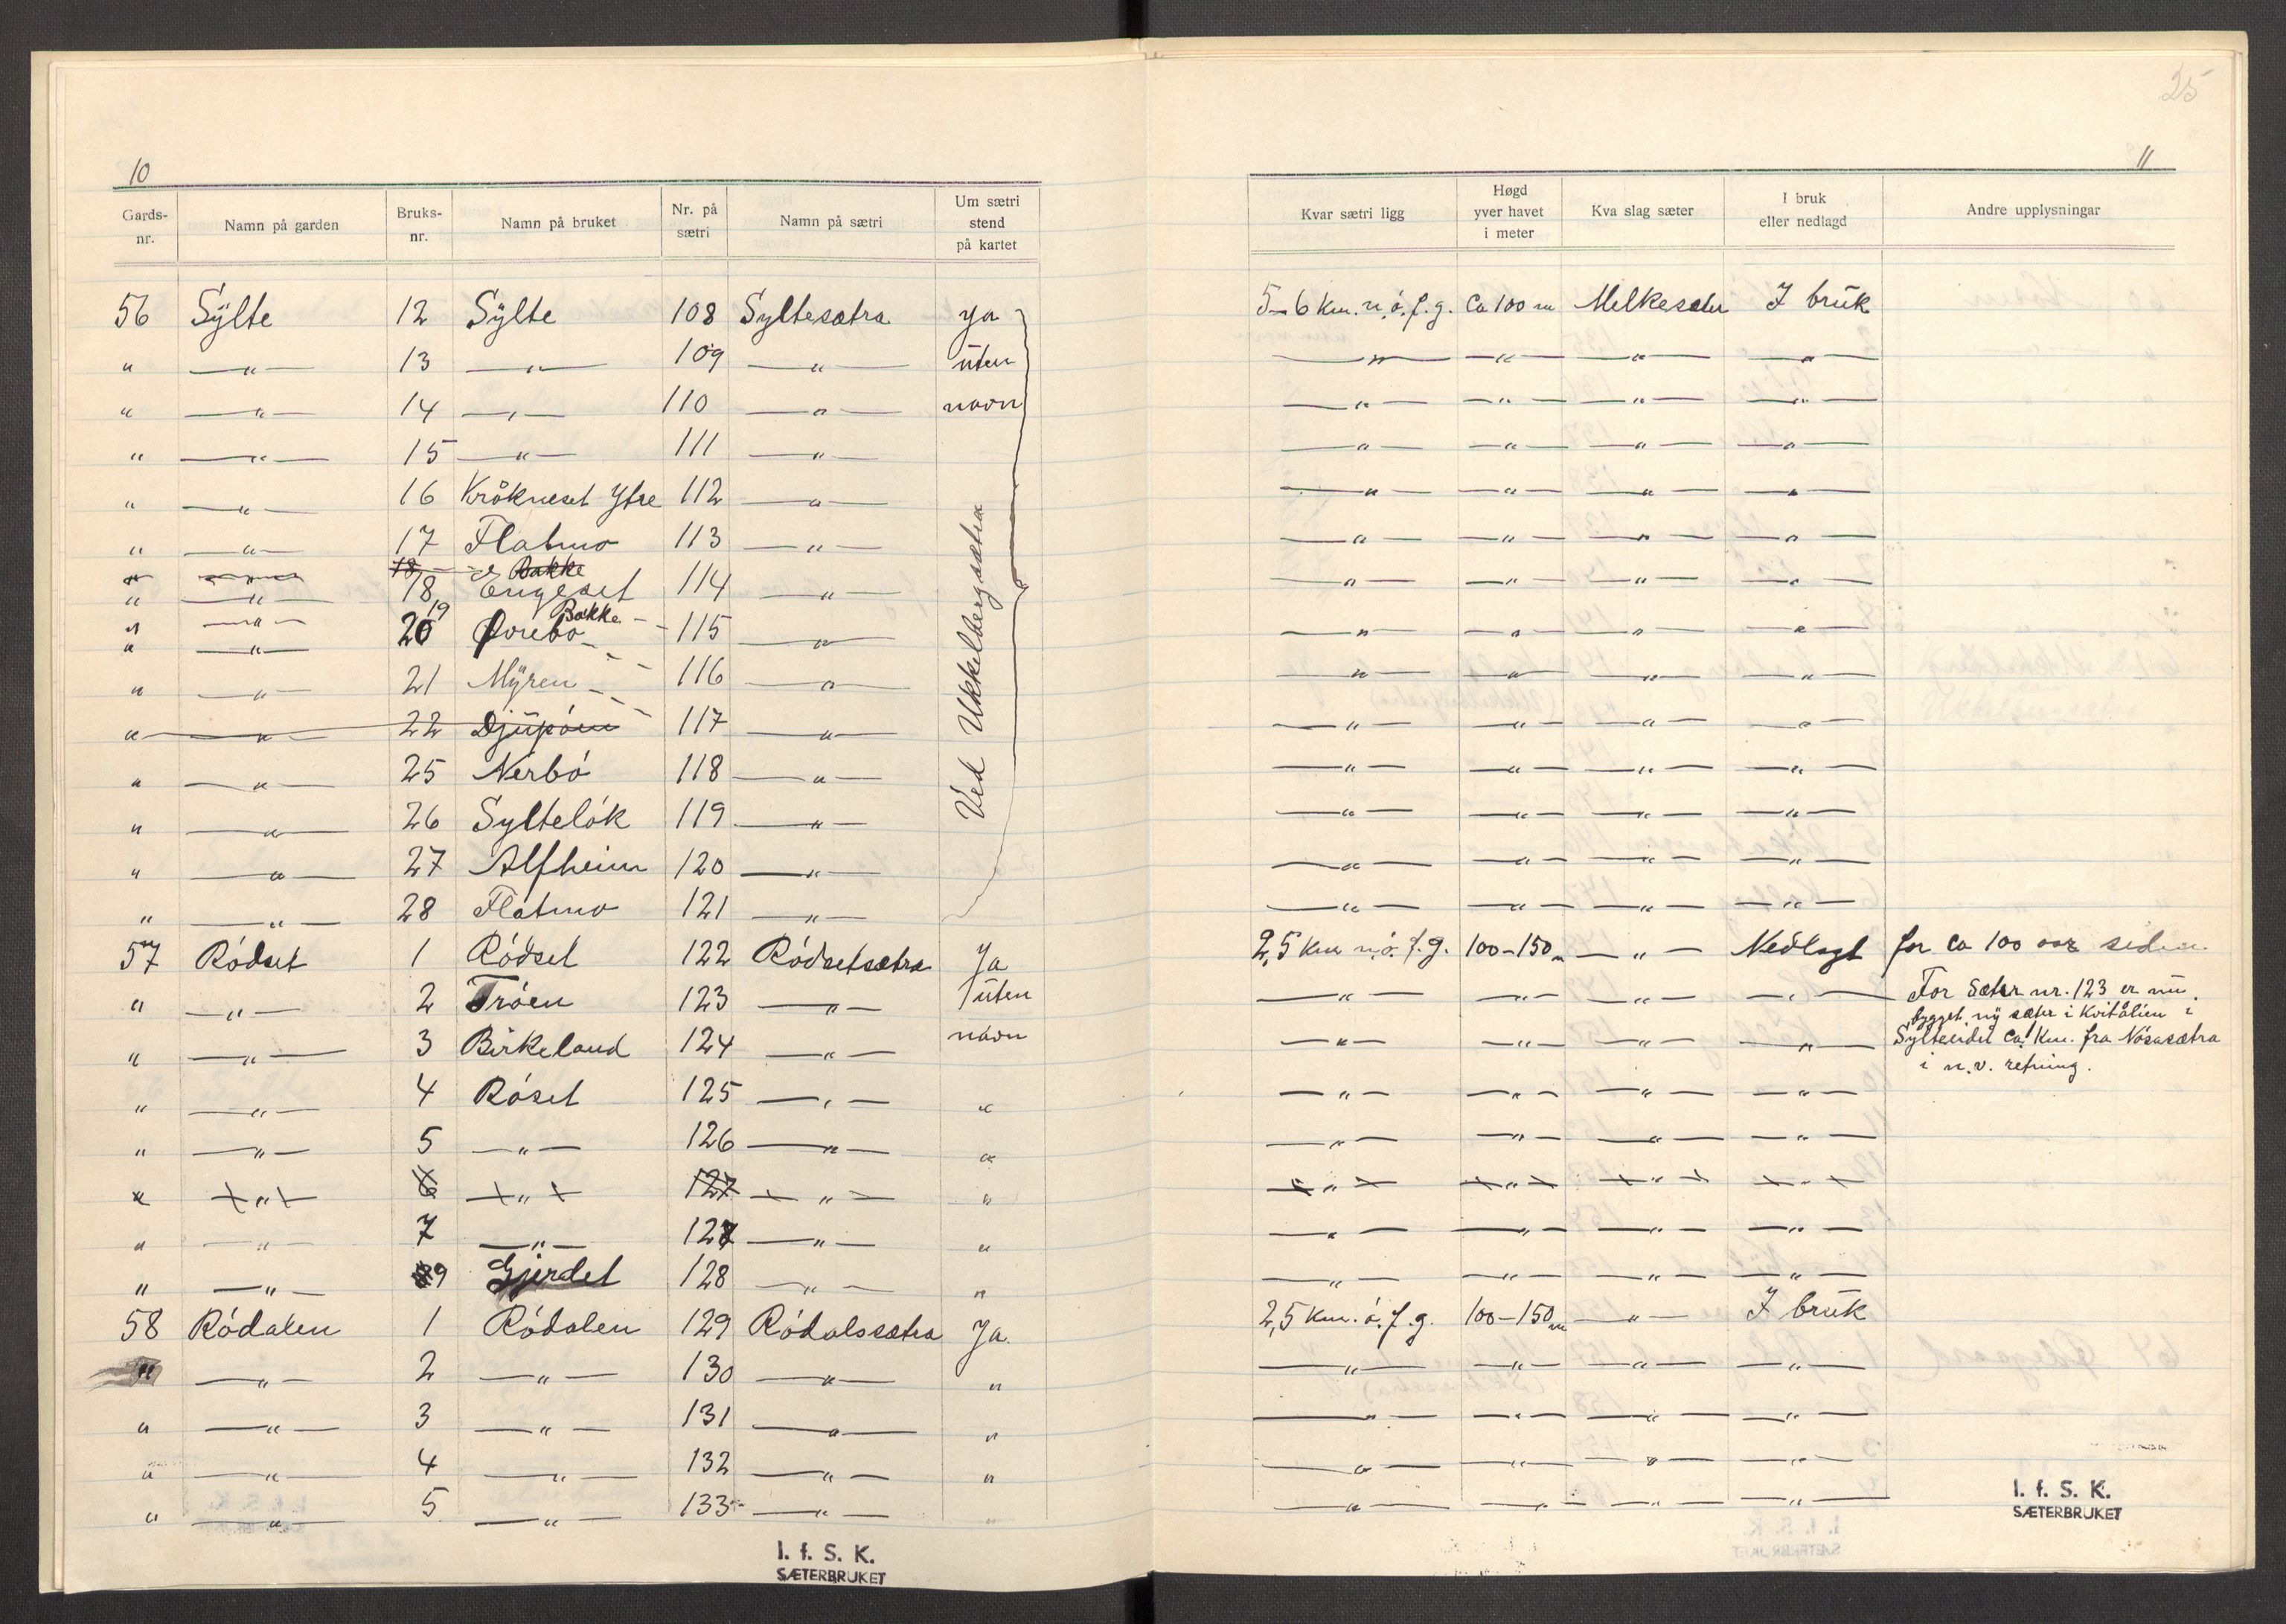 25
10
11
Gards-nr. Namn på garden Bruks-nr. Namn på bruket Nr. på sætri Namn på sætri Um sætri stend på kartet Kvar sætri ligg Høgd yver havet i meter Kva slag sæter I bruk eller nedlagd Andre upplysningar
56 Sylte 12 Sylte 108 Syltesætra Ja 5-6 km. n.ö.f.g. Ca 100 m Melkesæter I bruk
" —"— 13 —"— 109 —"— uten —"— —"— —"— —"—
" —"— 14 —"— 110 —"— navn —"— —"— —"— —"—
" —"— 15 —"— 111 —"— —"— —"— —"— —"—
" —"— 16 Kråkneset Ytre 112 —"— —"— —"— —"— —"—
" —"— 17 Flatmo 113 —"— —"— —"— —"— —"—
" —"— 18 Bakke
" —"— 18 Engeset 114 —"— —"— —"— —"— —"—
" —"— 19 Bakke
" —"— 20 Ørebo 115 —"— —"— —"— —"— —"—
" —"— 21 Myren 116 —"— —"— —"— —"— —"—
" —"— 22 Djupöen 117 —"— —"— —"— —"— —"—
" —"— 25 Nerbö 118 —"— —"— —"— —"— —"—
" —"— 26 Syltelök 119 —"— —"— —"— —"— —"—
" —"— 27 Alfheim 120 —"— —"— —"— —"— —"—
" —"— 28 Flatmo 121 —"— —"— —"— —"— —"—
Ved Ukkelbergsætra
57 Rödset 1 Rödset 122 Rödsetsætra Ja 2,5 km n.ö.f.g. 100-150 m —"— Nedlagt for ca 100 aar siden.
" —"— 2 Tröen 123 —"— uten —"— —"— —"— —"— For Sæter nr. 123 er nu
bygget ny sæter i Kvitålien i
" —"— 3 Birkeland 124 —"— navn —"— —"— —"— —"— Sylteeidet ca 1 Km. fra Nösasætra
i n.v. retning.
" —"— 4 Röset 125 —"— " —"— —"— —"— —"—
" —"— 5 —"— 126 —"— " —"— —"— —"— —"—
" —"— 6 —"— 127 —"— " —"— —"— —"— —"—
" —"— 7 —"— 127 —"— " —"— —"— —"— —"—
" —"— 9 Gjerdet 128 —"— " —"— —"— —"— —"—
58 Rödalen 1 Rödalen 129 Rödalssætra Ja 2,5 Km. ö.f.g. 100-150 m —"— I bruk
" —"— 2 —"— 130 —"— " —"— —"— —"— —"—
" —"— 3 —"— 131 —"— " —"— —"— —"— —"—
" —"— 4 —"— 132 —"— " —"— —"— —"— —"—
" —"— 5 —"— 133 —"— " —"— —"— —"— —"—
I. f. S. K.
SÆTERBRUKET
I. f. S. K.
SÆTERBRUKET